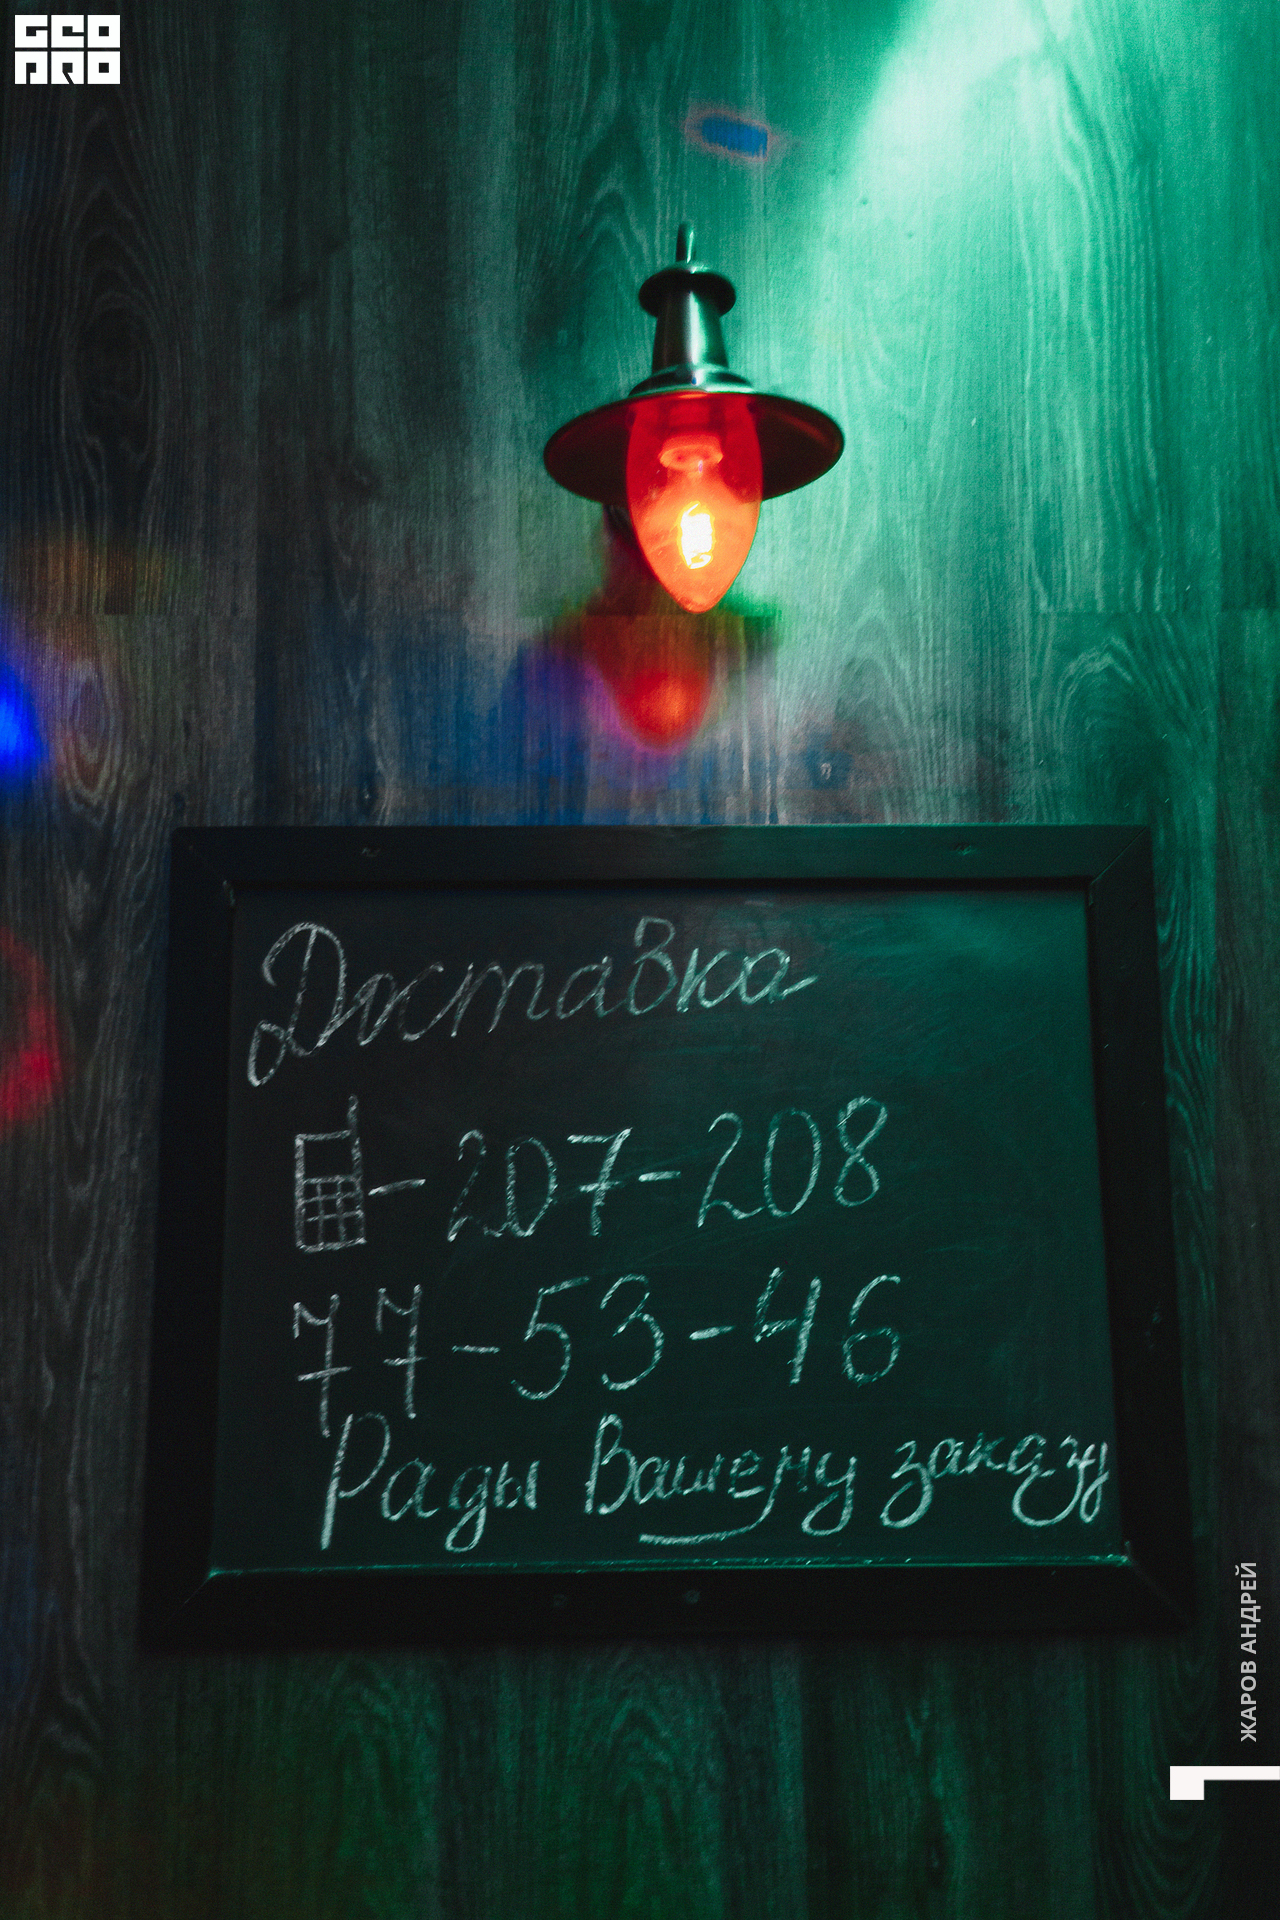 GEO
PRO
Доставка
- 207-208
77-53-46
Рады Вашему заказу
ЖАРОВ АНДРЕЙ